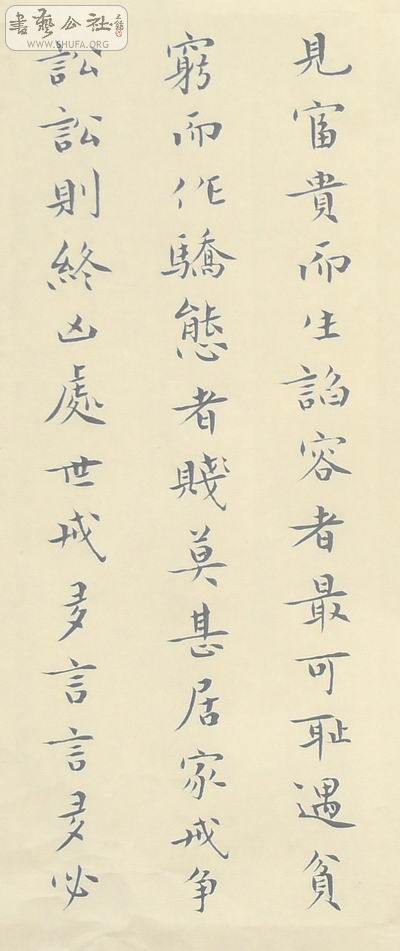 見富貴而生諂容者最可耻遇貧
窮而作驕態者賤莫甚居家戒争
訟訟則終凶處世戒多言言多必
書藝公社
WWW.SHUFA.ORG